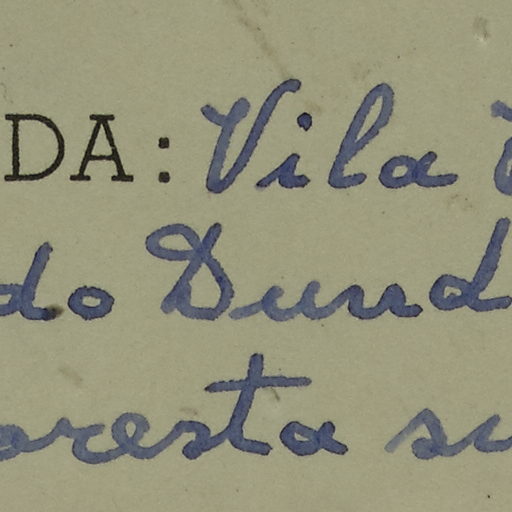 DA: Vila
do Dund
oresta su